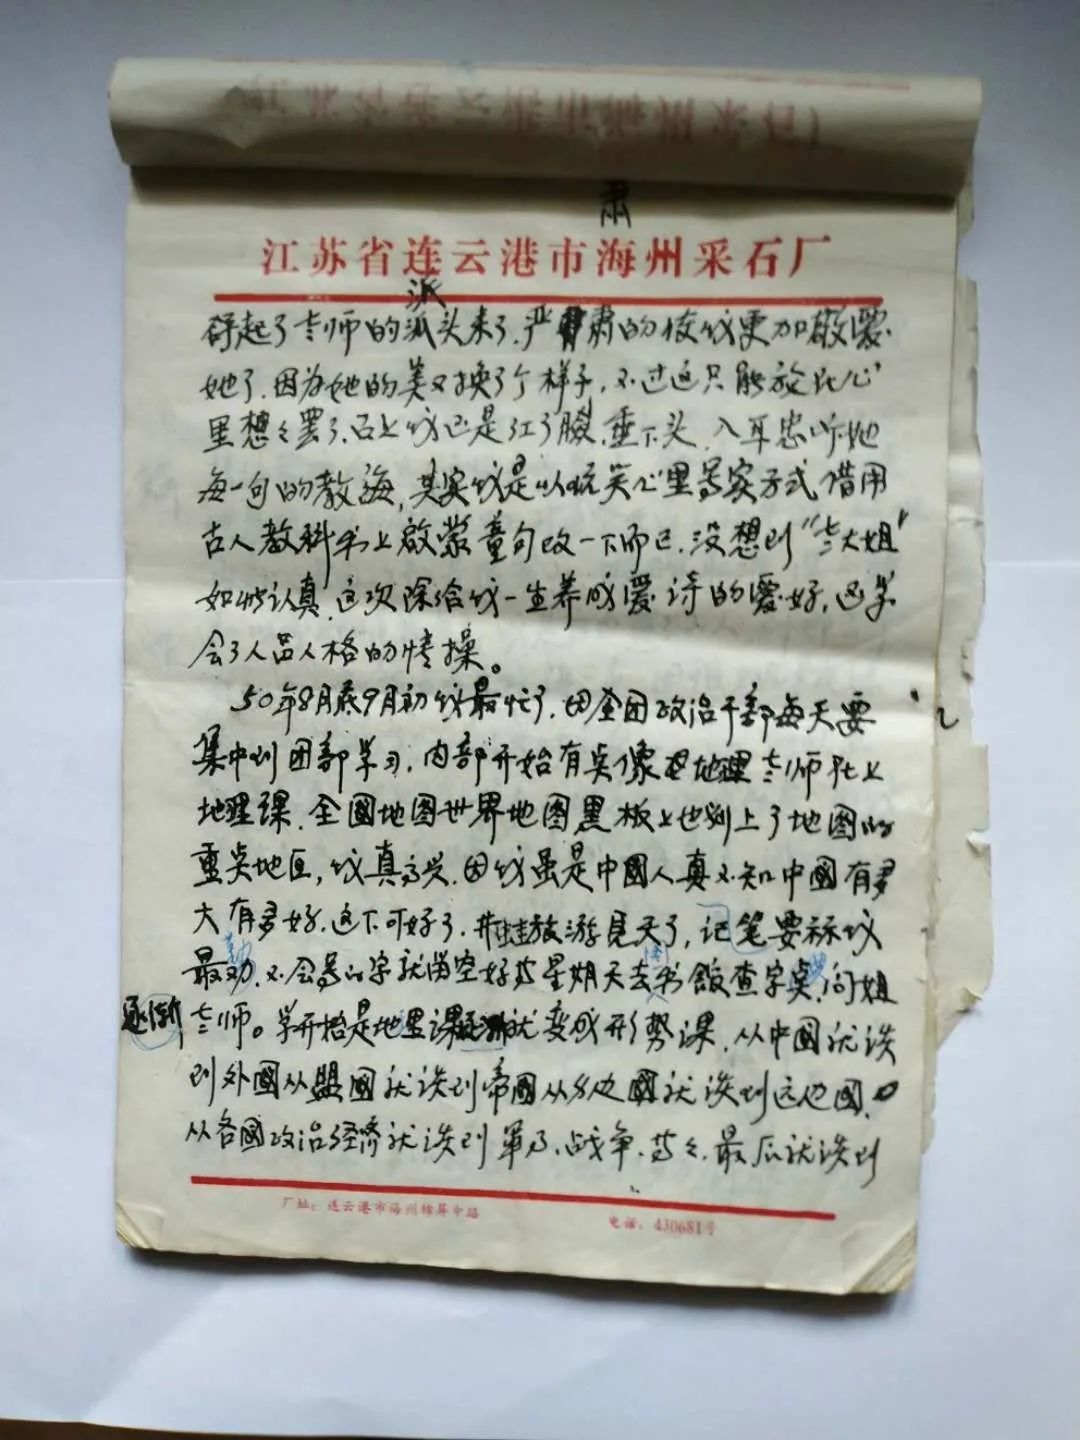 肃
江苏省连云港市海州采石厂
派
起了老师的派头来了，严肃的使我更加敬爱
她了，因为她的美又换了个样子，不过这只能放在心
里想々罢了，马上我还是红了脸，垂下头，入耳恭听她
每一句的教诲，其实我是以玩笑心里写实方式借用
古人教科书上启蒙童句改一下而已，没想到“老大姐”
如此认真，这次除给我一生养成爱诗的爱好，还学
会了人品人格的情操。
50年8月底9月初我最忙了，因全团政治干部每天要
集中到团部学习，内部开始有点像地理老师在上
地理课，全國地图世界地图黑板上也划上了地图的
重点地区，我真高兴，因我虽是中國人真不知中國有多
大有多好，这下可好了，井蛙旅游见天了，记笔要称我
勤 图 典
最，不会写的字就留空好等星期天去书馆查字，问姐
逐渐
老师。学开始是地里课就变成形势课，从中國就谈
到外國从盟國就谈到帝國从边國就谈到远边國，
从各國政治经济就谈到军事、战争、等々，最后就谈到
厂址：连云港市海州中路
电话：430681号